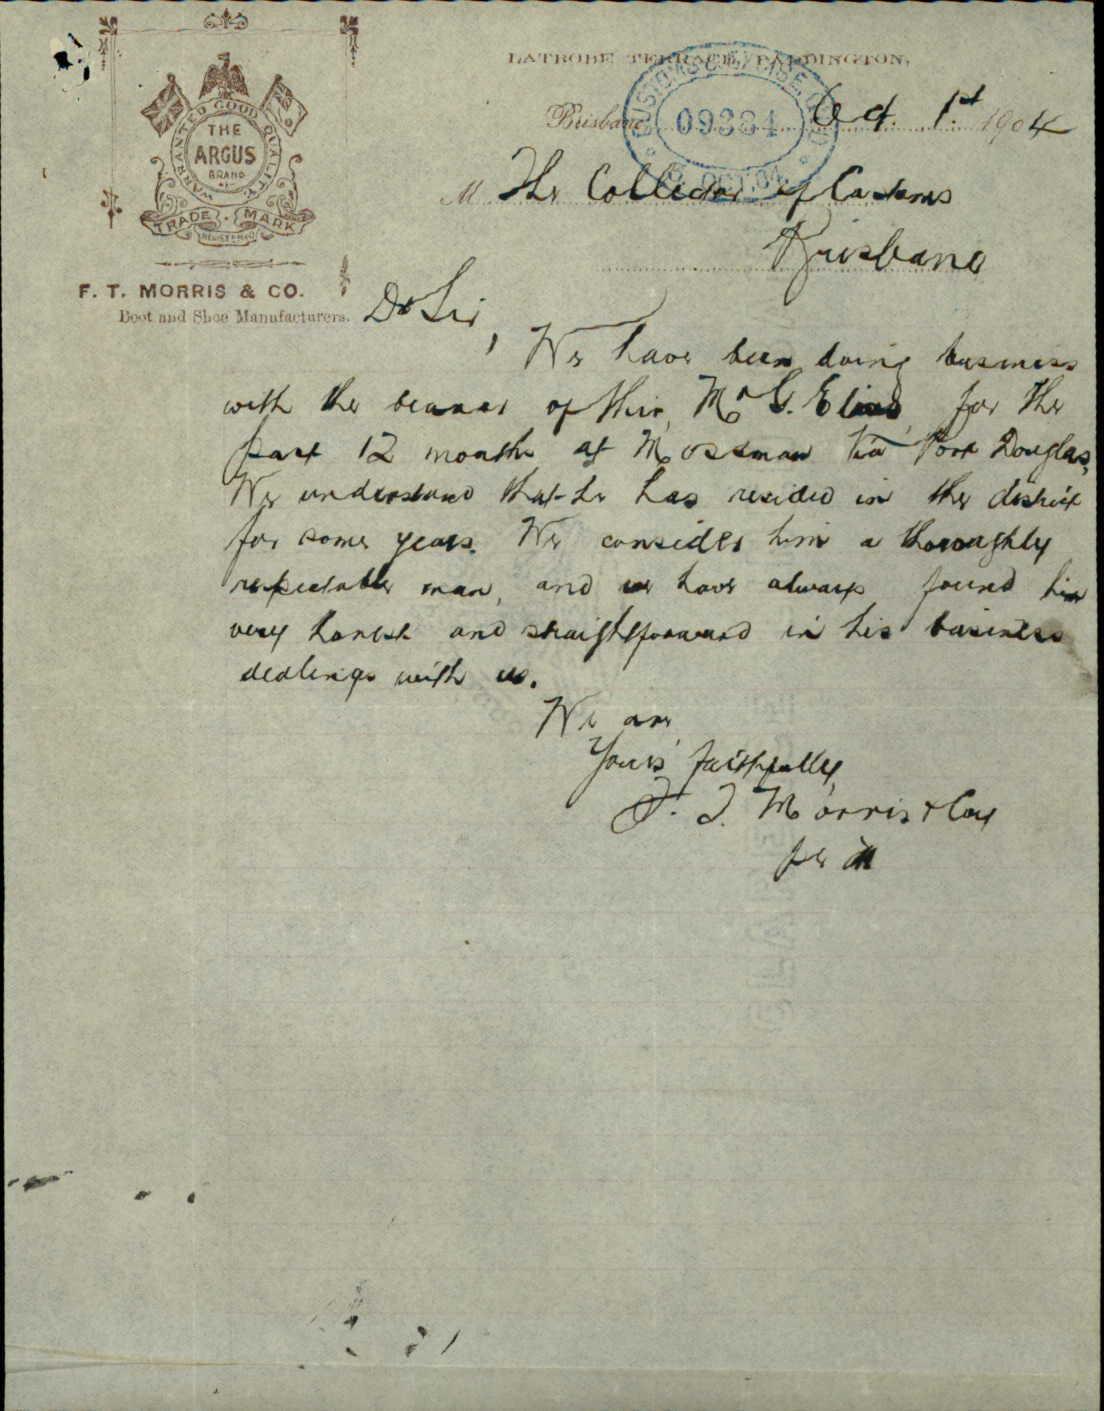 LATROBE TERRACE, PADDINGTON,
WARRANTED GOOD QUALITY
THE
ARGUS
BRAND
TRADE MARK
REGISTERED
F. T. MORRIS & CO.
Boot and Shoe Manufacturers.
CUSTOMS & EXCISE
09334
OCT. 04
Brisbane Oct. 1st 1904
M The Collector of Customs
Brisbane
Dr Sir,
We have been doing business
with the bearer of this, Mr G. Elias, for the
past 12 months at Mossman via Port Douglas,
We understand that he has resided in the district
for some years. We consider him a thoroughly
respectable man, and we have always found him
very honest and straightforward in his business
dealings with us.
We are,
Yours faithfully,
F. T. Morris & Coy
per M